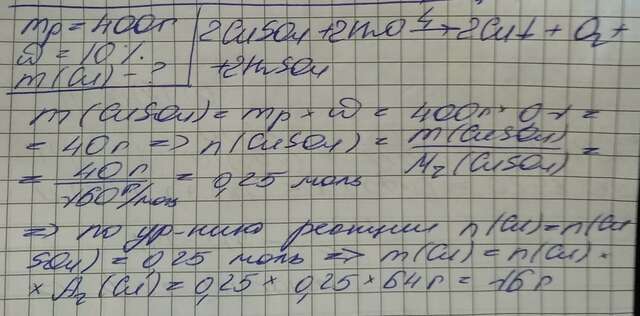 mр = 400г
ω = 10%
m(Cu) - ?
2CuSO4 + 2H2O → 2Cu↓ + O2 +
+ 2H2SO4
m(CuSO4) = mр × ω = 400г × 0,1 =
= 40г => n(CuSO4) = m(CuSO4) / Mr(CuSO4) =
= 40г / 160г/моль = 0,25 моль
=> по ур-нию реакции n(Cu) = n(Cu
SO4) = 0,25 моль => m(Cu) = n(Cu) ×
× Ar(Cu) = 0,25 × 0,25 × 64г = 16г